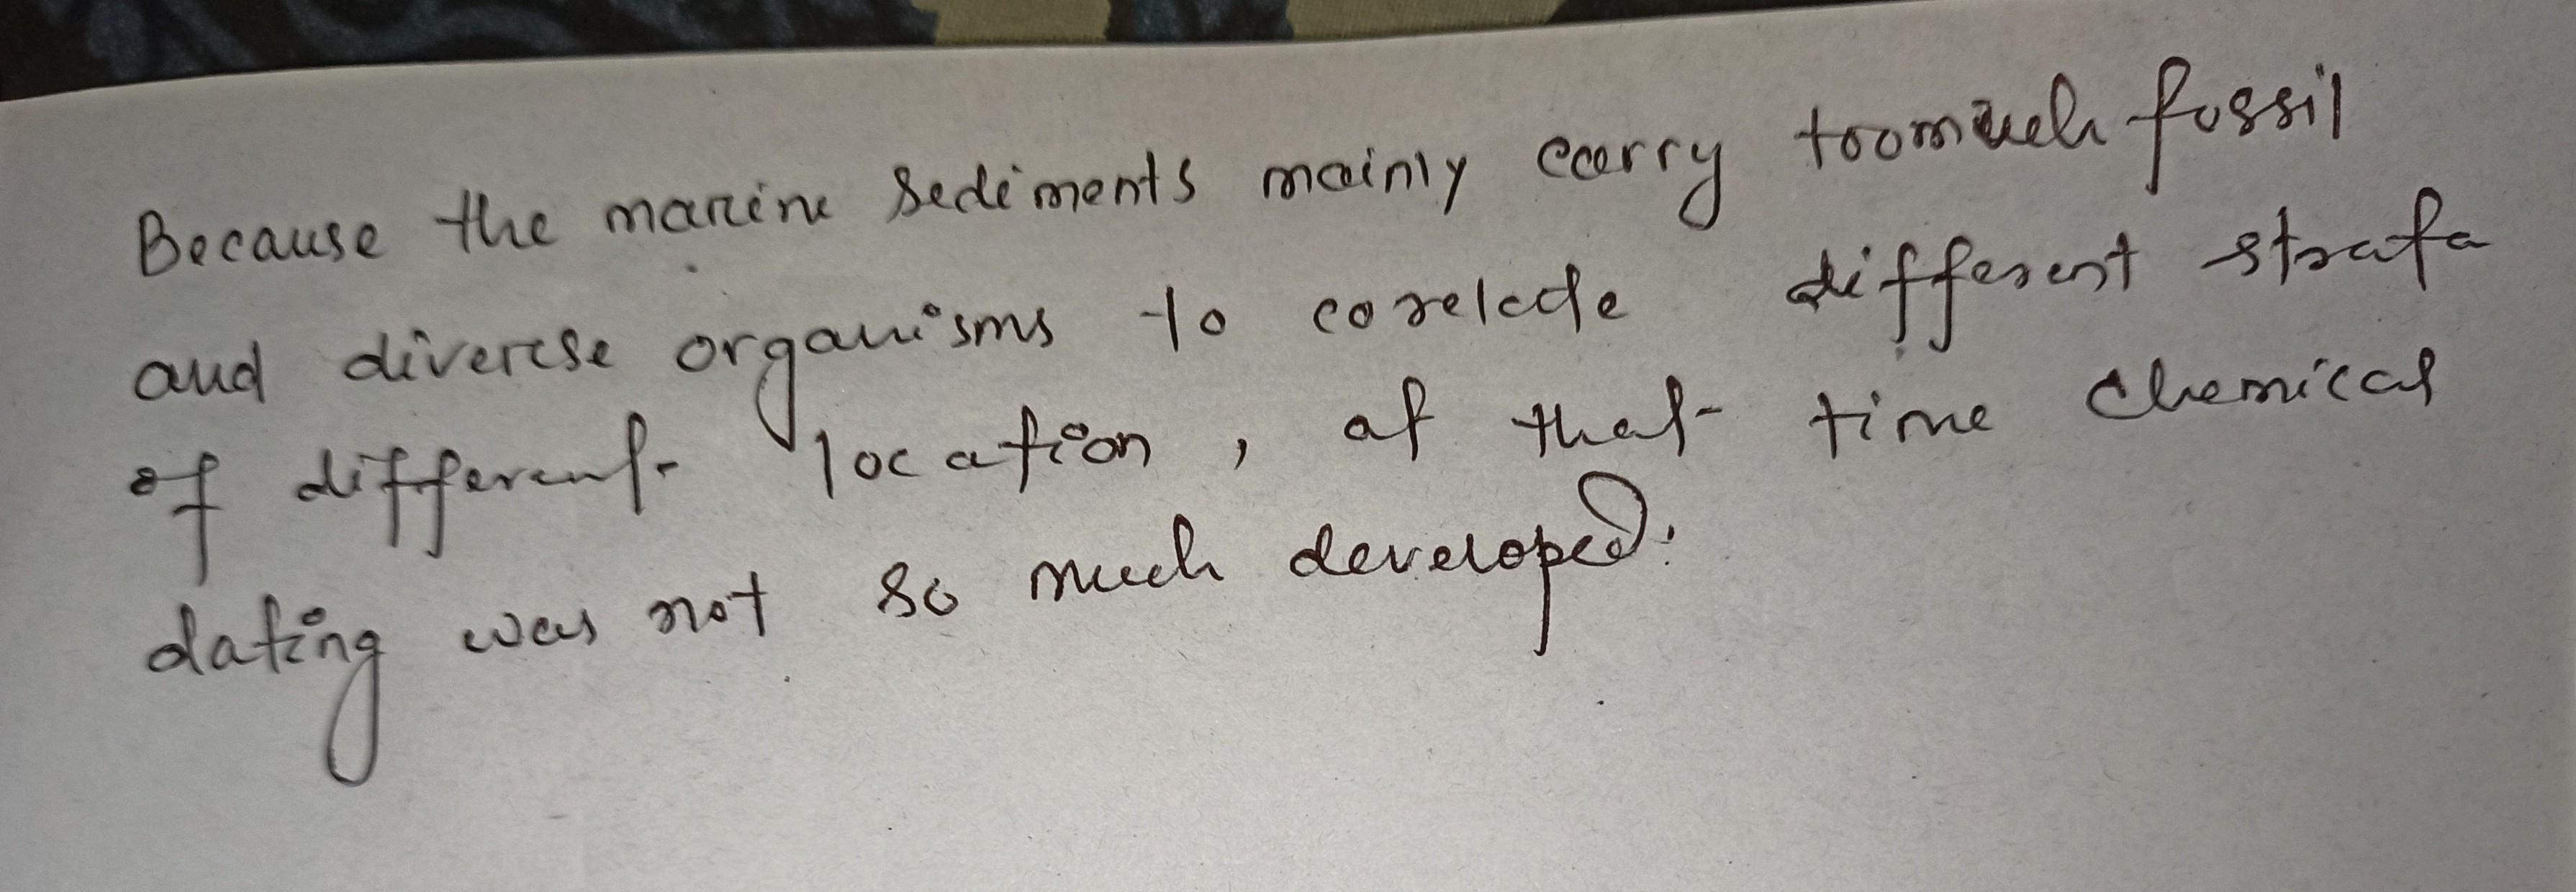 Because the marine sediments mainly carry toomuch fossil
and diverse organisms to corelate different strata
of different location, at that time chemical
dating was not so much developed.